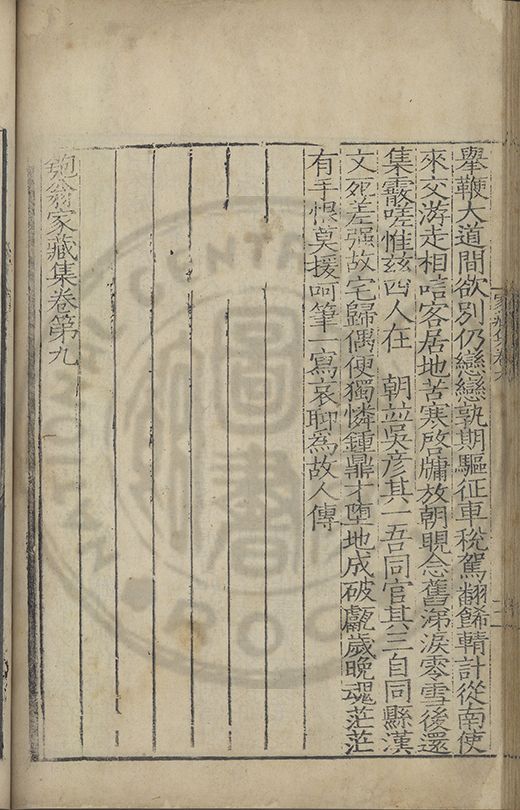 舉鞭大道間欲別仍戀戀孰期驅征車稅駕翻餙輤計從南使
來交游走相唁客居地苦寒啓牖放朝晛念舊涕淚零雪後還
集霰嗟惟兹四人在 朝竝吳彥其一吾同官其三自同縣漢
文死差强故宅歸偶便獨憐鍾鼎才墮地成破甗歲晚魂茫茫
有手恨莫援呵筆一寫哀聊為故人傳
匏翁家藏集卷第九